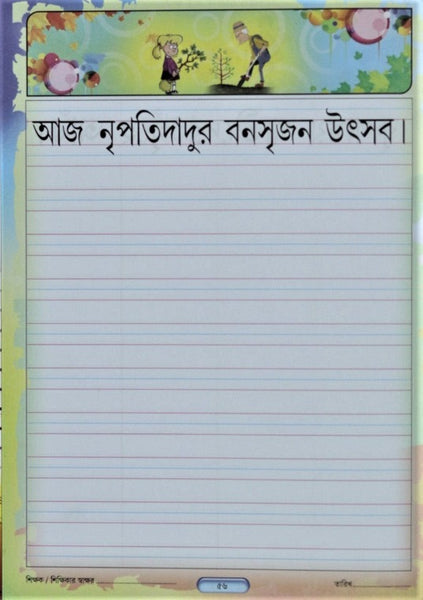 আজ নৃপতিদাদুর বনসৃজন উৎসব।
শিক্ষক / শিক্ষিকার স্বাক্ষর
৫৬
তারিখ